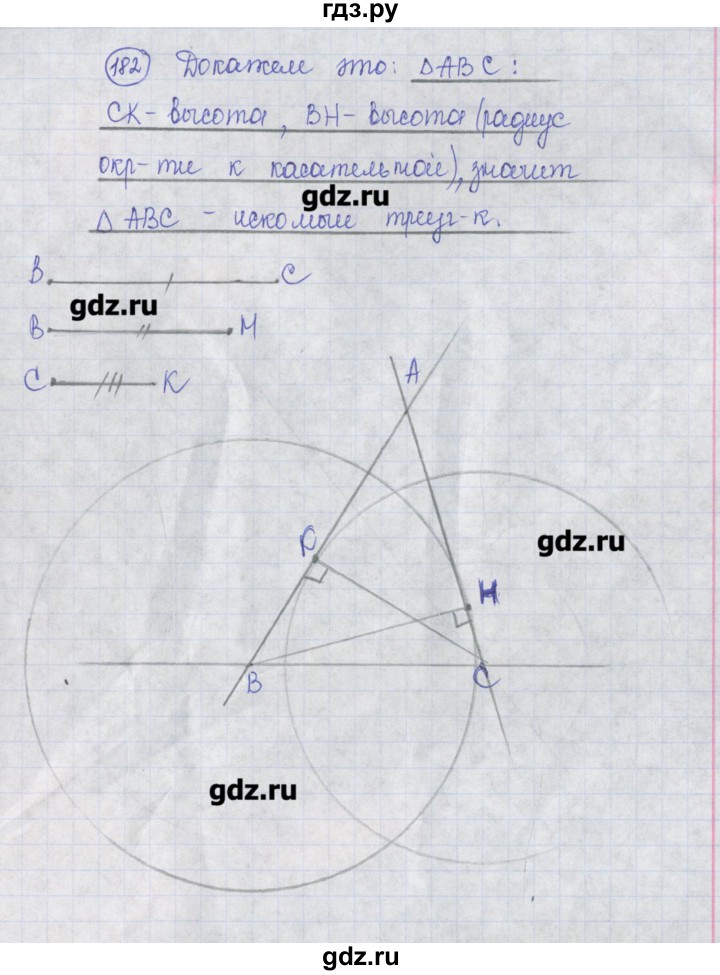 гдз.ру
182 Докажем это: △ABC:
CK - высота, BH - высота (радиус
окр-ти к касательной), значит
gdz.ru
△ ABC - искомый треуг-к.
B C
gdz.ru
B H
C K
A
gdz.ru
K
H
B C
gdz.ru
gdz.ru